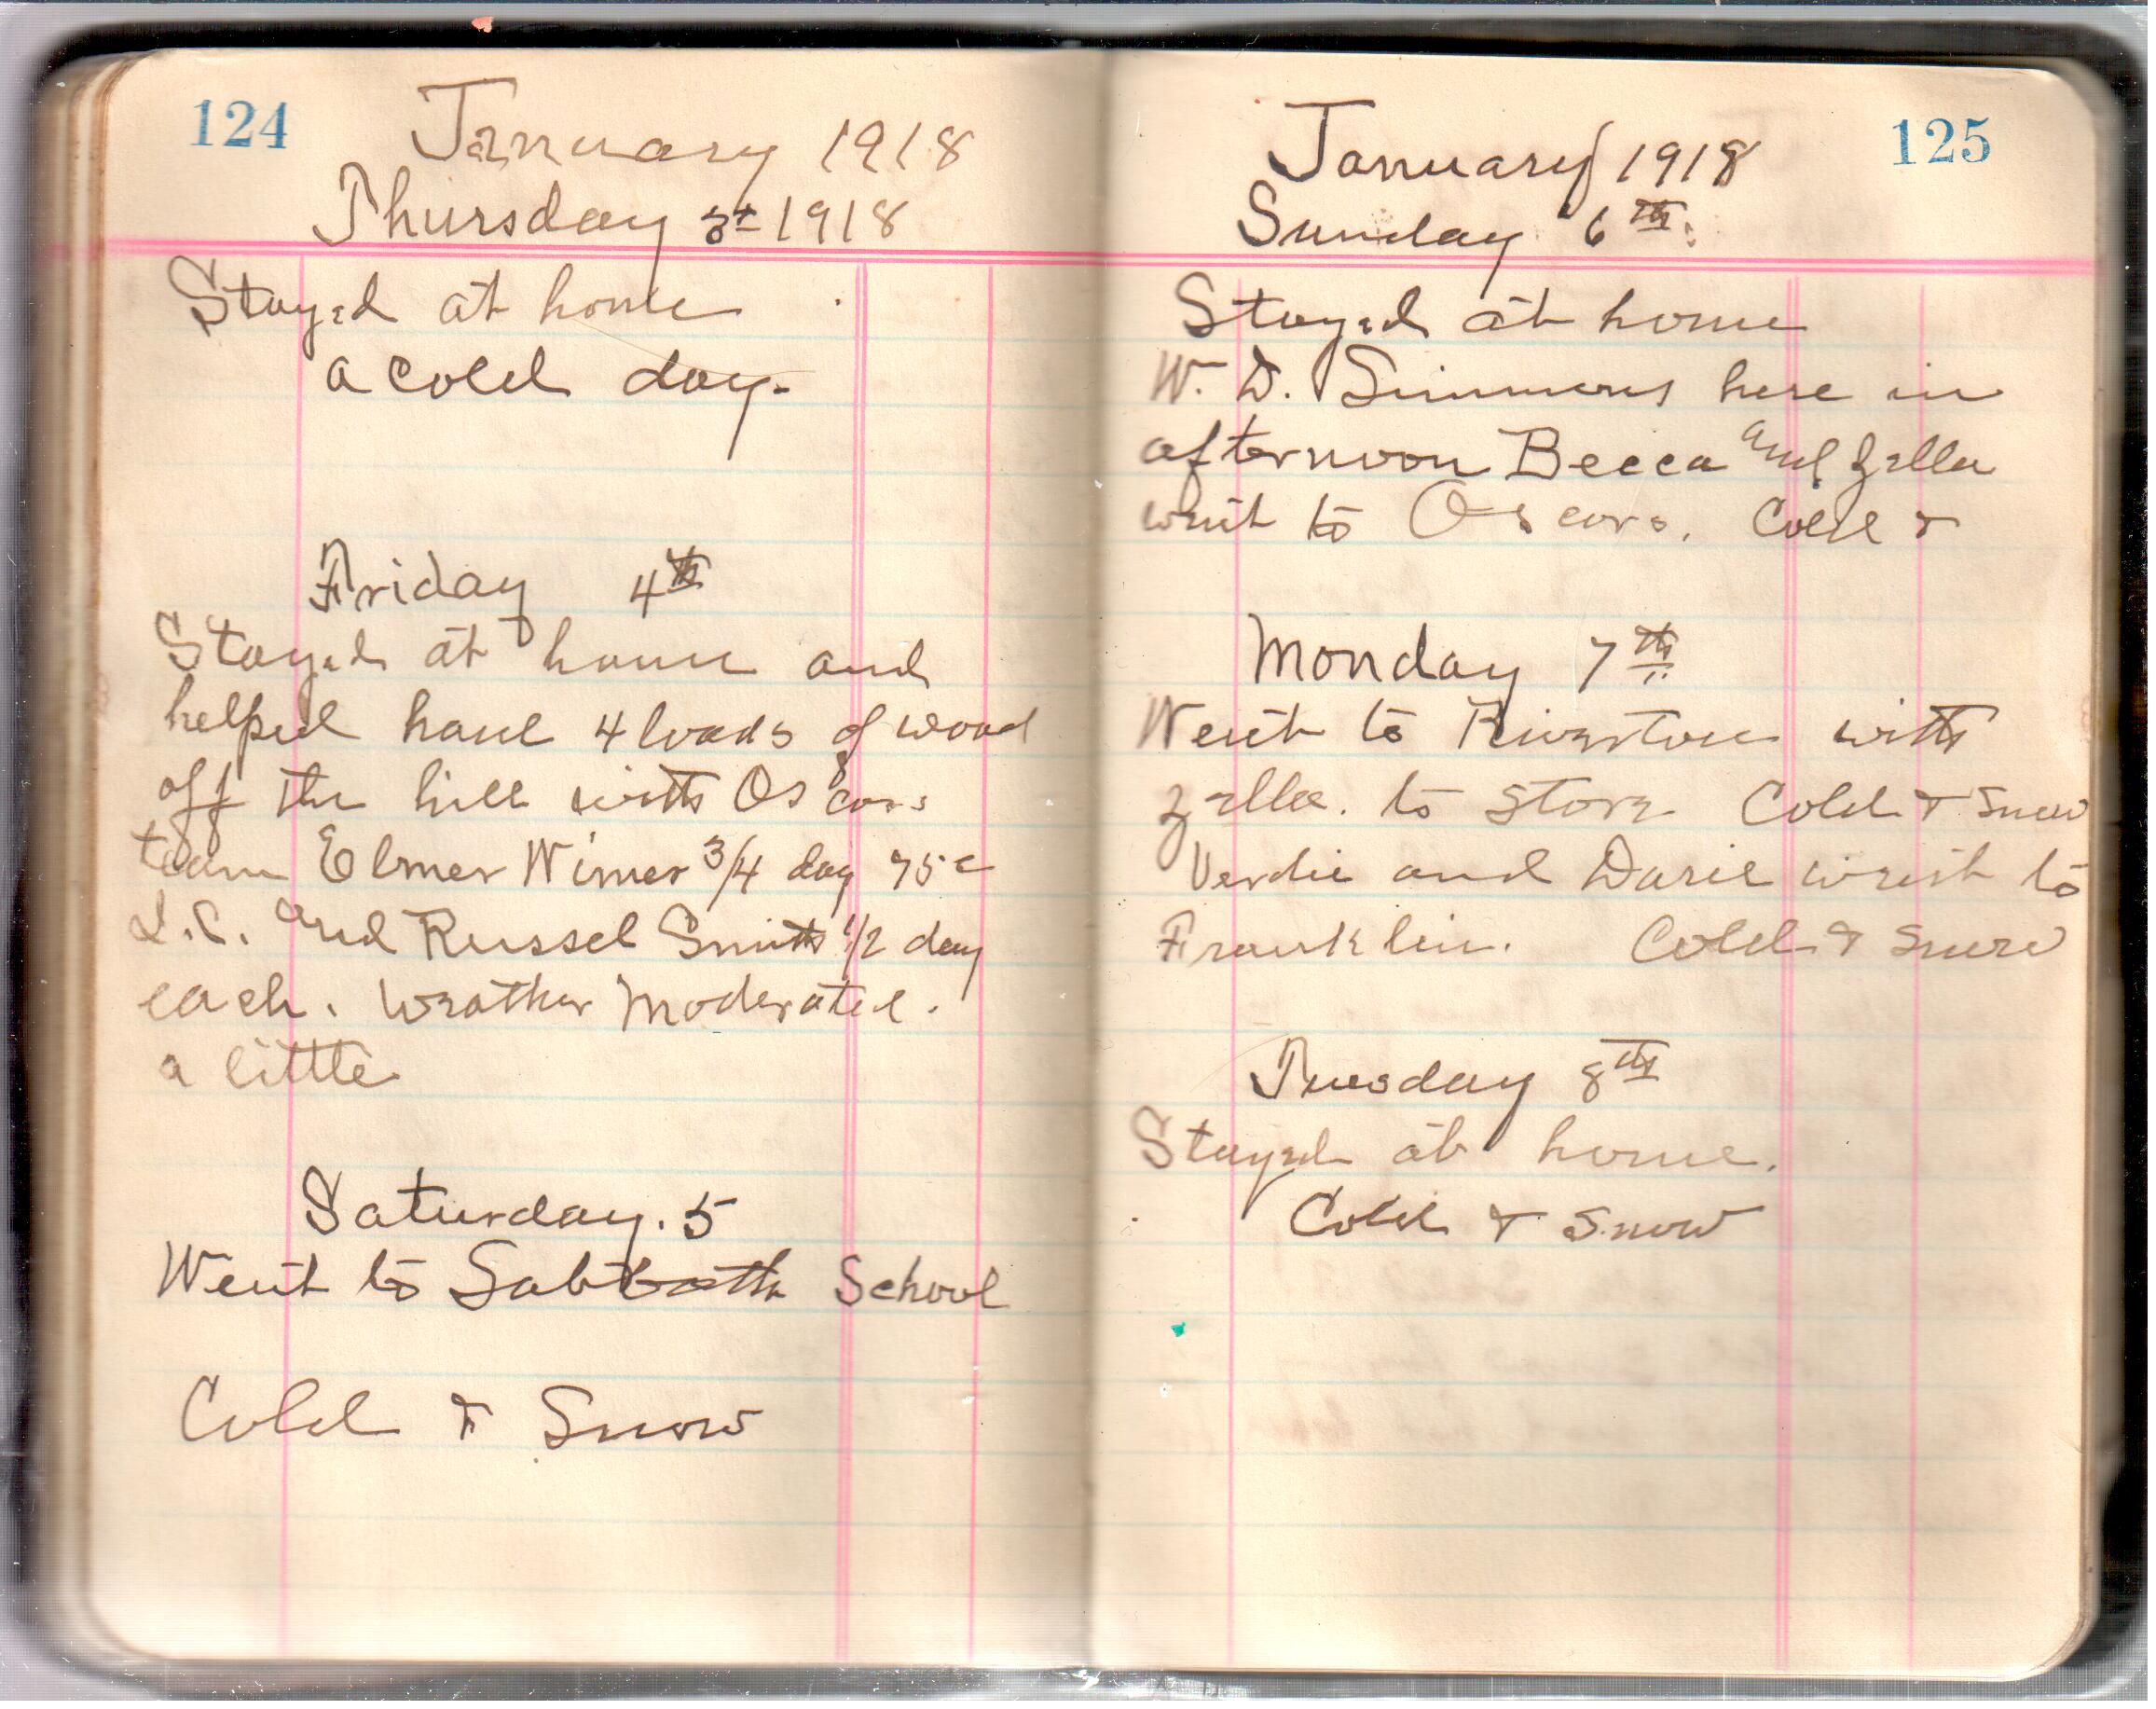 124
January 1918
Thursday 3d 1918
Stayed at home
a cold day.
Friday 4th
Stayed at home and
helped haul 4 loads of wood
off the hill with Oscars
team Elmer Wimer 3/4 day 75c
L.C. and Russel Smith 1/2 day
each. Weather moderated.
a little
Saturday. 5
Went to Sabbath School
Cold & Snow
125
January 1918
Sunday 6th.
Stayed at home
W. D. Simmons here in
afternoon Becca and Zella
went to Oscars. Cold &
Monday 7th
Went to Riverton with
Zella. to store Cold & Snow
Verdie and Dasie went to
Franklin. Cold & Snow
Tuesday 8th
Stayed at home.
Cold & Snow